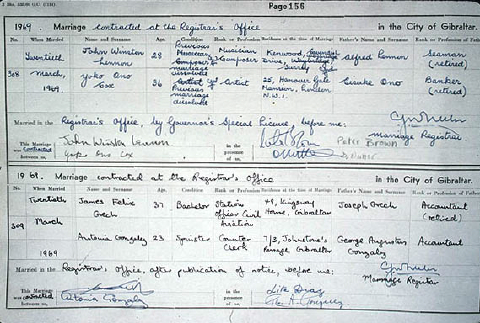 Page 156
1969 Marriage contracted at the Registrar's Office in the City of Gibraltar.
When Married Name and Surname Age Condition Rank or Profession Residence at the time of Marriage Father's Name and Surname Rank or Profession of Father
308
Twentieth March, 1969
John Winston Lennon 28 Previous marriage dissolved Musician Composer Kenwood, Surrey Alfred Lennon Seaman (retired)
Yoko Ono Cox 36 Previous marriage dissolved Artist 25, Hanover Gate Mansion, London N.W.1. Eisuke Ono Banker (retired)
Married in the Registrar's Office, by Governor's Special Licence, before me:
Marriage Registrar
This Marriage was contracted between us,
John Winston Lennon
Yoko Ono Cox
in the presence of us,
Peter BROWN
1969. Marriage contracted at the Registrar's Office in the City of Gibraltar.
When Married Name and Surname Age Condition Rank or Profession Residence at the time of Marriage Father's Name and Surname Rank or Profession of Father
309
Twentieth March 1969
James Felix Grech 37 Bachelor Station Officer Civil Aviation 41, Kingsway House, Gibraltar Joseph Grech Accountant (retired)
Antonia Gonzalez 23 Spinster Counter Clerk 7/3, Johnstone's Passage Gibraltar George Augustus Gonzalez Accountant
Married in the Registrar's Office, after publication of notice, before me:
Marriage Registrar
This Marriage was contracted between us,
Antonia Gonzalez
in the presence of us,